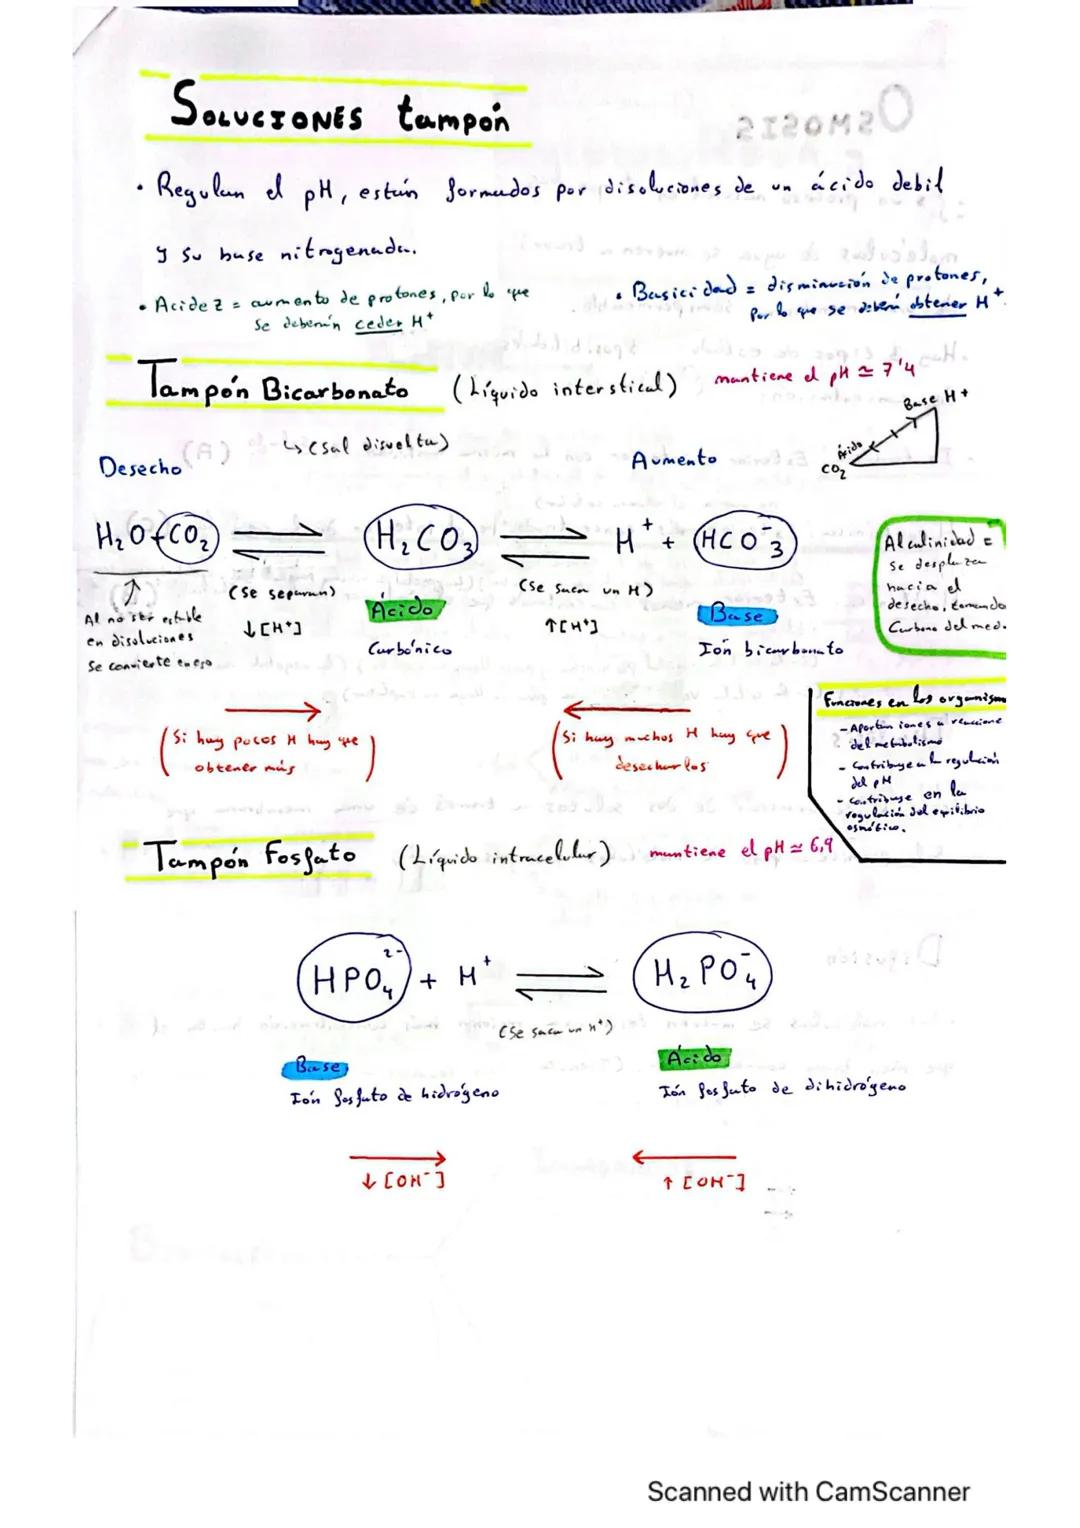 SOLUCIONES tampón
• Regulan el pH, están formados por disoluciones de un ácido debil
y su base nitrogenada.
• Acidez = aumento de protones, por lo que
se deberán ceder H⁺
• Basicidad = disminución de protones,
por lo que se deberá obtener H⁺.
Tampón Bicarbonato (Líquido interstical) mantiene el pH ≃ 7'4
↳ (sal disuelta)
Base H⁺
Ácido
CO₂
Desecho
Aumento
H₂O + CO₂ ⇌ H₂CO₃ ⇌ H⁺ + HCO₃⁻
↑
Al no ser estable
en disoluciones
se convierte en eso
(Se separan)
↓[H⁺]
Ácido
Carbónico
(Se saca un H)
↑[H⁺]
Base
Ión bicarbonato
Alcalinidad =
se desplaza
hacia el
desecho, tomando
Carbono del med.
→
(Si hay pocos H hay que
obtener más)
←
(Si hay muchos H hay que
desecharlos)
Funciones en los organism
- Aportan iones a reaccione
del metabolismo
- Contribuye a la regulación
del pH
- Contribuye en la
regulación del equilibrio
osmótico.
Tampón Fosfato (Líquido intracelular) mantiene el pH ≃ 6,9
HPO₄²⁻ + H⁺ ⇌ H₂PO₄⁻
(Se saca un H⁺)
Base
Ión fosfato de hidrógeno
Ácido
Ión fosfato de dihidrógeno
→
↓ [OH⁻]
←
↑ [OH⁻]
Scanned with CamScanner